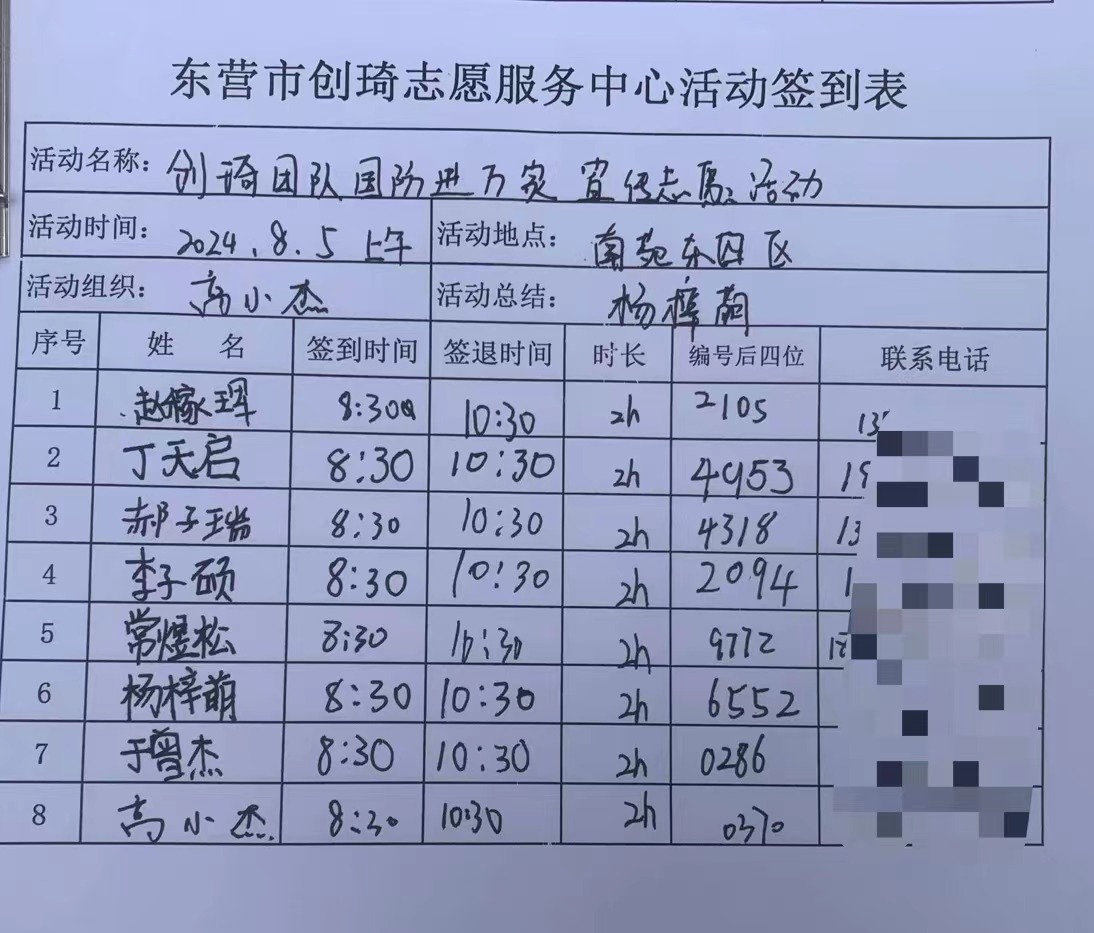 东营市创琦志愿服务中心活动签到表
活动名称：创琦团队国防进万家宣传志愿活动
活动时间：2024.8.5上午 活动地点：南苑东四区
活动组织：高小杰 活动总结：杨梓萌
序号 姓名 签到时间 签退时间 时长 编号后四位 联系电话
1 赵稼珲 8:30 10:30 2h 2105 13
2 丁天启 8:30 10:30 2h 4953 19
3 郝子瑞 8:30 10:30 2h 4318 13
4 李子硕 8:30 10:30 2h 2094 1
5 常煜松 8:30 10:30 2h 9772 18
6 杨梓萌 8:30 10:30 2h 6552
7 于曾杰 8:30 10:30 2h 0286
8 高小杰 8:30 10:30 2h 0370